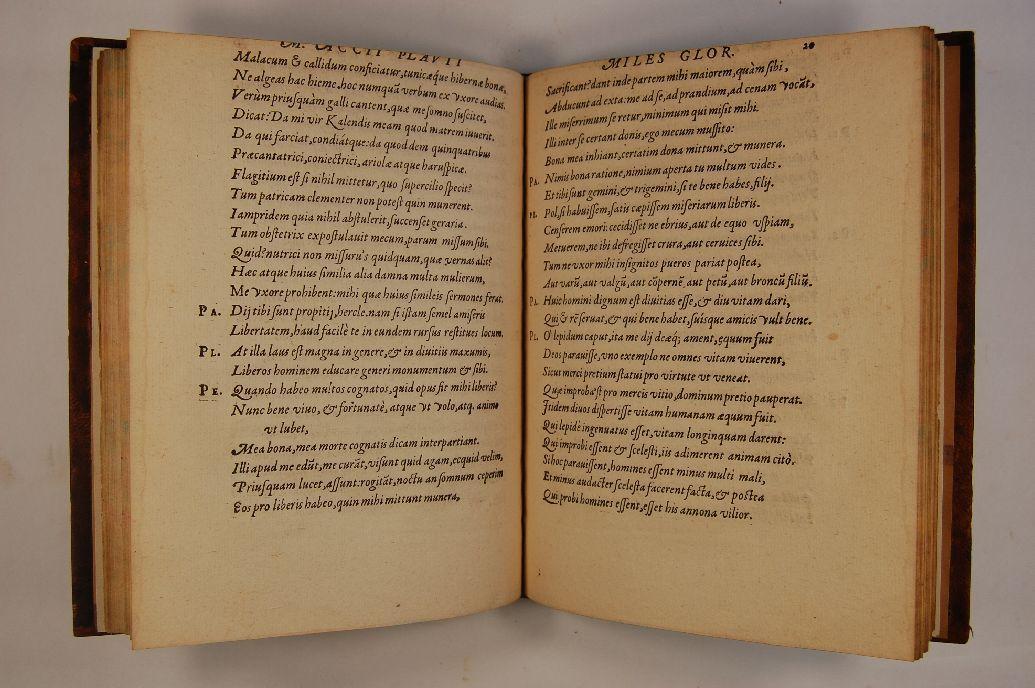 M. ACCII PLAVTI
Malacum & callidum conficiatur, tunicæque hibernæ bonæ,
Ne algeas hac hieme, hoc numquā verbum ex vxore audias.
Verùm priusquàm galli cantent, quæ me somno suscitet,
Dicat: Da mi vir Kalendis meam quod matrem iuuerit.
Da qui farciat, condiátque: da quod dem quinquatribus
Præcantatrici, coniectrici, ariolæ atque haruspicæ.
Flagitium est si nihil mittetur, quo supercilio specit?
Tum patricam clementer non potest quin munerent.
Iampridem quia nihil abstulerit, succenset geraria.
Tum obstetrix expostulauit mecum, parum missum sibi.
Quid? nutrici non missuru's quidquam, quæ vernas alit?
Hæc atque huius similia alia damna multa mulierum,
Me vxore prohibent: mihi quæ huius simileis sermones ferat.
PA. Dij tibi sunt propitij, hercle. nam si istam semel amiseris
Libertatem, haud facilè te in eundem rursus restitues locum.
PL. At illa laus est magna in genere, & in diuitiis maxumis,
Liberos hominem educare generi monumentum & sibi.
PE. Quando habeo multos cognatos, quid opus sit mihi liberis?
Nunc bene viuo, & fortunatè, atque vt volo, atq. animo
vt lubet,
Mea bona, mea morte cognatis dicam interpartiant.
Illi apud me edūt, me curāt, visunt quid agam, ecquid velim,
Priusquam lucet, assunt: rogitāt, noctu an somnum ceperim
Eos pro liberis habeo, quin mihi mittunt munera,
MILES GLOR. 20
Sacrificant? dant inde partem mihi maiorem, quàm sibi,
Abducunt ad exta: me ad se, ad prandium, ad cenam vocāt,
Ille miserrimum se retur, minimum qui misit mihi.
Illi inter se certant donis, ego mecum mussito:
Bona mea inhiant, certatim dona mittunt, & munera.
PA. Nimis bona ratione, nimium aperta tu multum vides.
Et tibi sunt gemini, & trigemini, si te bene habes, filij.
PE. Pol, si habuissem, satis cæpissem miseriarum liberis.
Censerem emori: cecidisset ne ebrius, aut de equo vspiam,
Metuerem, ne ibi defregisset crura, aut ceruices sibi.
Tum ne vxor mihi insignitos pueros pariat postea,
Aut varū, aut valgū, aut cōpernē, aut petū, aut broncū filiū.
PA. Huic homini dignum est diuitias esse, & diu vitam dari,
Qui & rē seruat, & qui bene habet, suísque amicis vult bene.
PL. O lepidum caput, ita me dij deæq; ament, æquum fuit
Deos parauisse, vno exemplo ne omnes vitam viuerent,
Sicut merci pretium statui pro virtute vt veneat.
Quæ improba'st pro mercis vitio, dominum pretio pauperat.
Itidem diuos dispertisse vitam humanam æquum fuit.
Qui lepidè ingenuatus esset, vitam longinquam darent:
Qui improbi essent & scelesti, iis adimerent animam citò.
Si hoc parauissent, homines essent minus multi mali,
Et minus audacter scelesta facerent facta, & postea
Qui probi homines essent, esset his annona vilior.